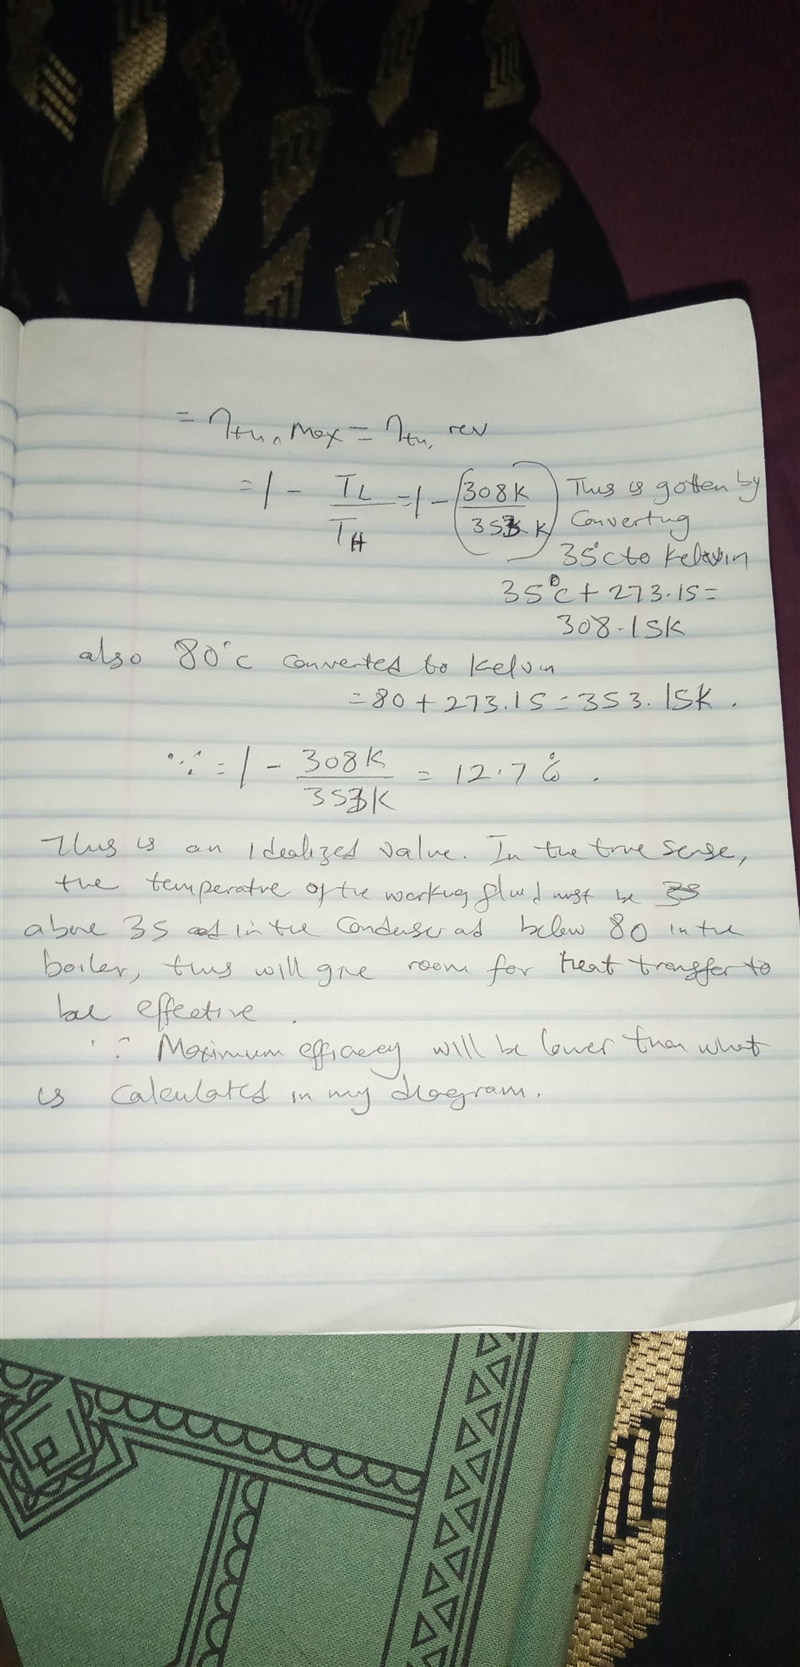 = ηth, Max = ηth, rev
= 1 - TL/TH = 1 - (308K/353K) This is gotten by
Converting
35°c to Kelvin
35°c + 273.15 =
308.15K
also 80°c converted to Kelvin
= 80 + 273.15 = 353.15K.
∵ = 1 - 308K/353K = 12.7%.
This is an Idealized value. In the true sense,
the temperature of the working fluid must be
above 35 in the Condenser and below 80 in the
boiler, this will give room for heat transfer to
be effective.
∴ Maximum efficiency will be lower than what
is calculated in my diagram.